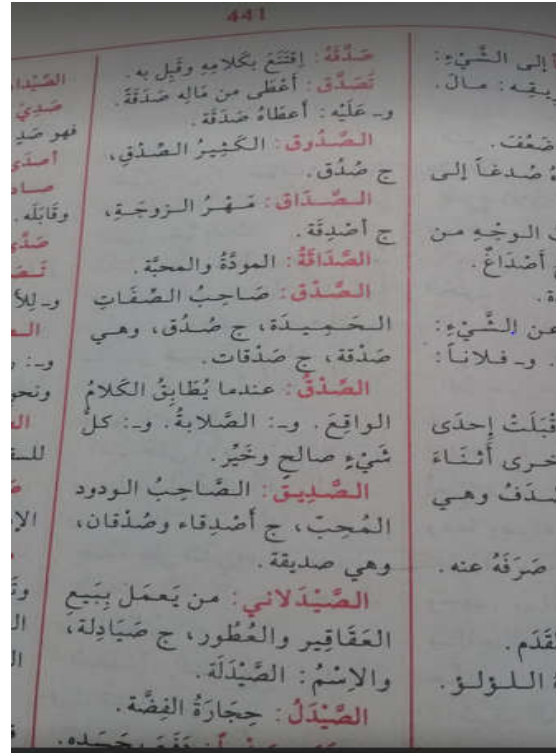 441
إلى الشَّيْءِ:
يقِه: مالَ.
ضَعُفَ.
صُدغاً إلى
الوجْهِ من
أَصْدَاغٌ.
عن الشَّيْءِ:
وـ فلاناً:
قَبَلَتْ إحدَى
أثْنَاءَ
وهي
صَرَفَهُ عنه.
اللؤلؤ.
صَدَّقَهُ: اِقتَنَعَ بكَلامِهِ وقَبِل به.
تَصَدَّق: أعْطَى من مَالِه صَدَقَةً.
وـ عَلَيْه: أعطَاهُ صَدَقَة.
الصَّدُوق: الكَثِيرُ الصِّدْقِ،
ج صُدُق.
الصَّدَاق: مَهْرُ الزوجَةِ،
ج أصْدِقَة.
الصَّدَاقَةُ: المودَّةُ والمحبَّة.
الصَّدْق: صَاحِبُ الصِّفَاتِ
الحَمِيدَة، ج صُدُق، وهي
صَدْقة، ج صَدْقات.
الصِّدْقُ: عندما يُطَابِقُ الكَلامُ
الواقِعَ. وـ: الصَّلابةُ. وـ: كلُّ
شَيْءٍ صالحٍ وخَيِّر.
الصَّدِيق: الصَّاحِبُ الودود
المُحِبّ، ج أَصْدِقاء وصُدْقان،
وهي صديقة.
الصَّيْدَلاني: من يَعمَل بِبَيعِ
العَقَاقِير والعُطُور، ج صَيَادِلة،
والاِسْمُ: الصَّيْدَلَة.
الصَّيْدَلُ: حِجَارَةُ الفِضَّة.
صَدِيَ
فهو
وقَابَلَه.